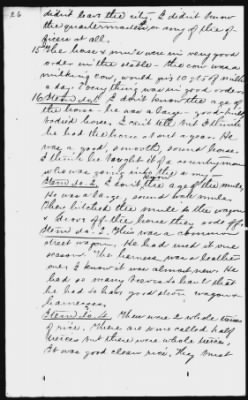 26
didn't leave the city. I didn't know
the quartermaster, or any of the of-
ficers at all.
15 The horse & mule were in very good
order in the stable. The cow was a
milking cow, would give 10 qts of milk
a day. Everything was in good order.
16 Item No. 1. I don't know the age of
the horse. He was a large good
bodied horse. I can't tell but I think
he had the horse about a year. He
was a good, smooth, sound horse.
I think he bought it of a countryman
who was going into the army.
Item No. 2. I don't know the age of the mule.
He was a large sound mule.
They hitched the mule to the wagon
& drove off the horse they rode off.
Item No. 3. This was a common
street wagon. He had used it one
season. The harness was a leather
one. I know it was almost new. He
had so many to haul that
he had to have good strong wagon &
harnesses.
Item No. 4. There were 2 whole tierces
of rice. There are some called half
tierces but these were whole tierces.
It was good clean rice. They must